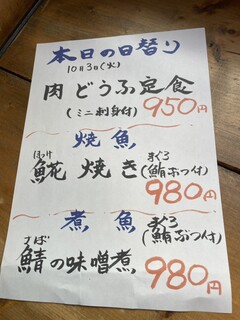 本日の日替り
10月3日(火)
肉どうふ定食
(ミニ刺身付) 950円
焼魚
ほっけ
𩸽焼き
まぐろ
(鮪ぶつ付)
980円
煮魚
さば
鯖の味噌煮
まぐろ
(鮪ぶつ付)
980円